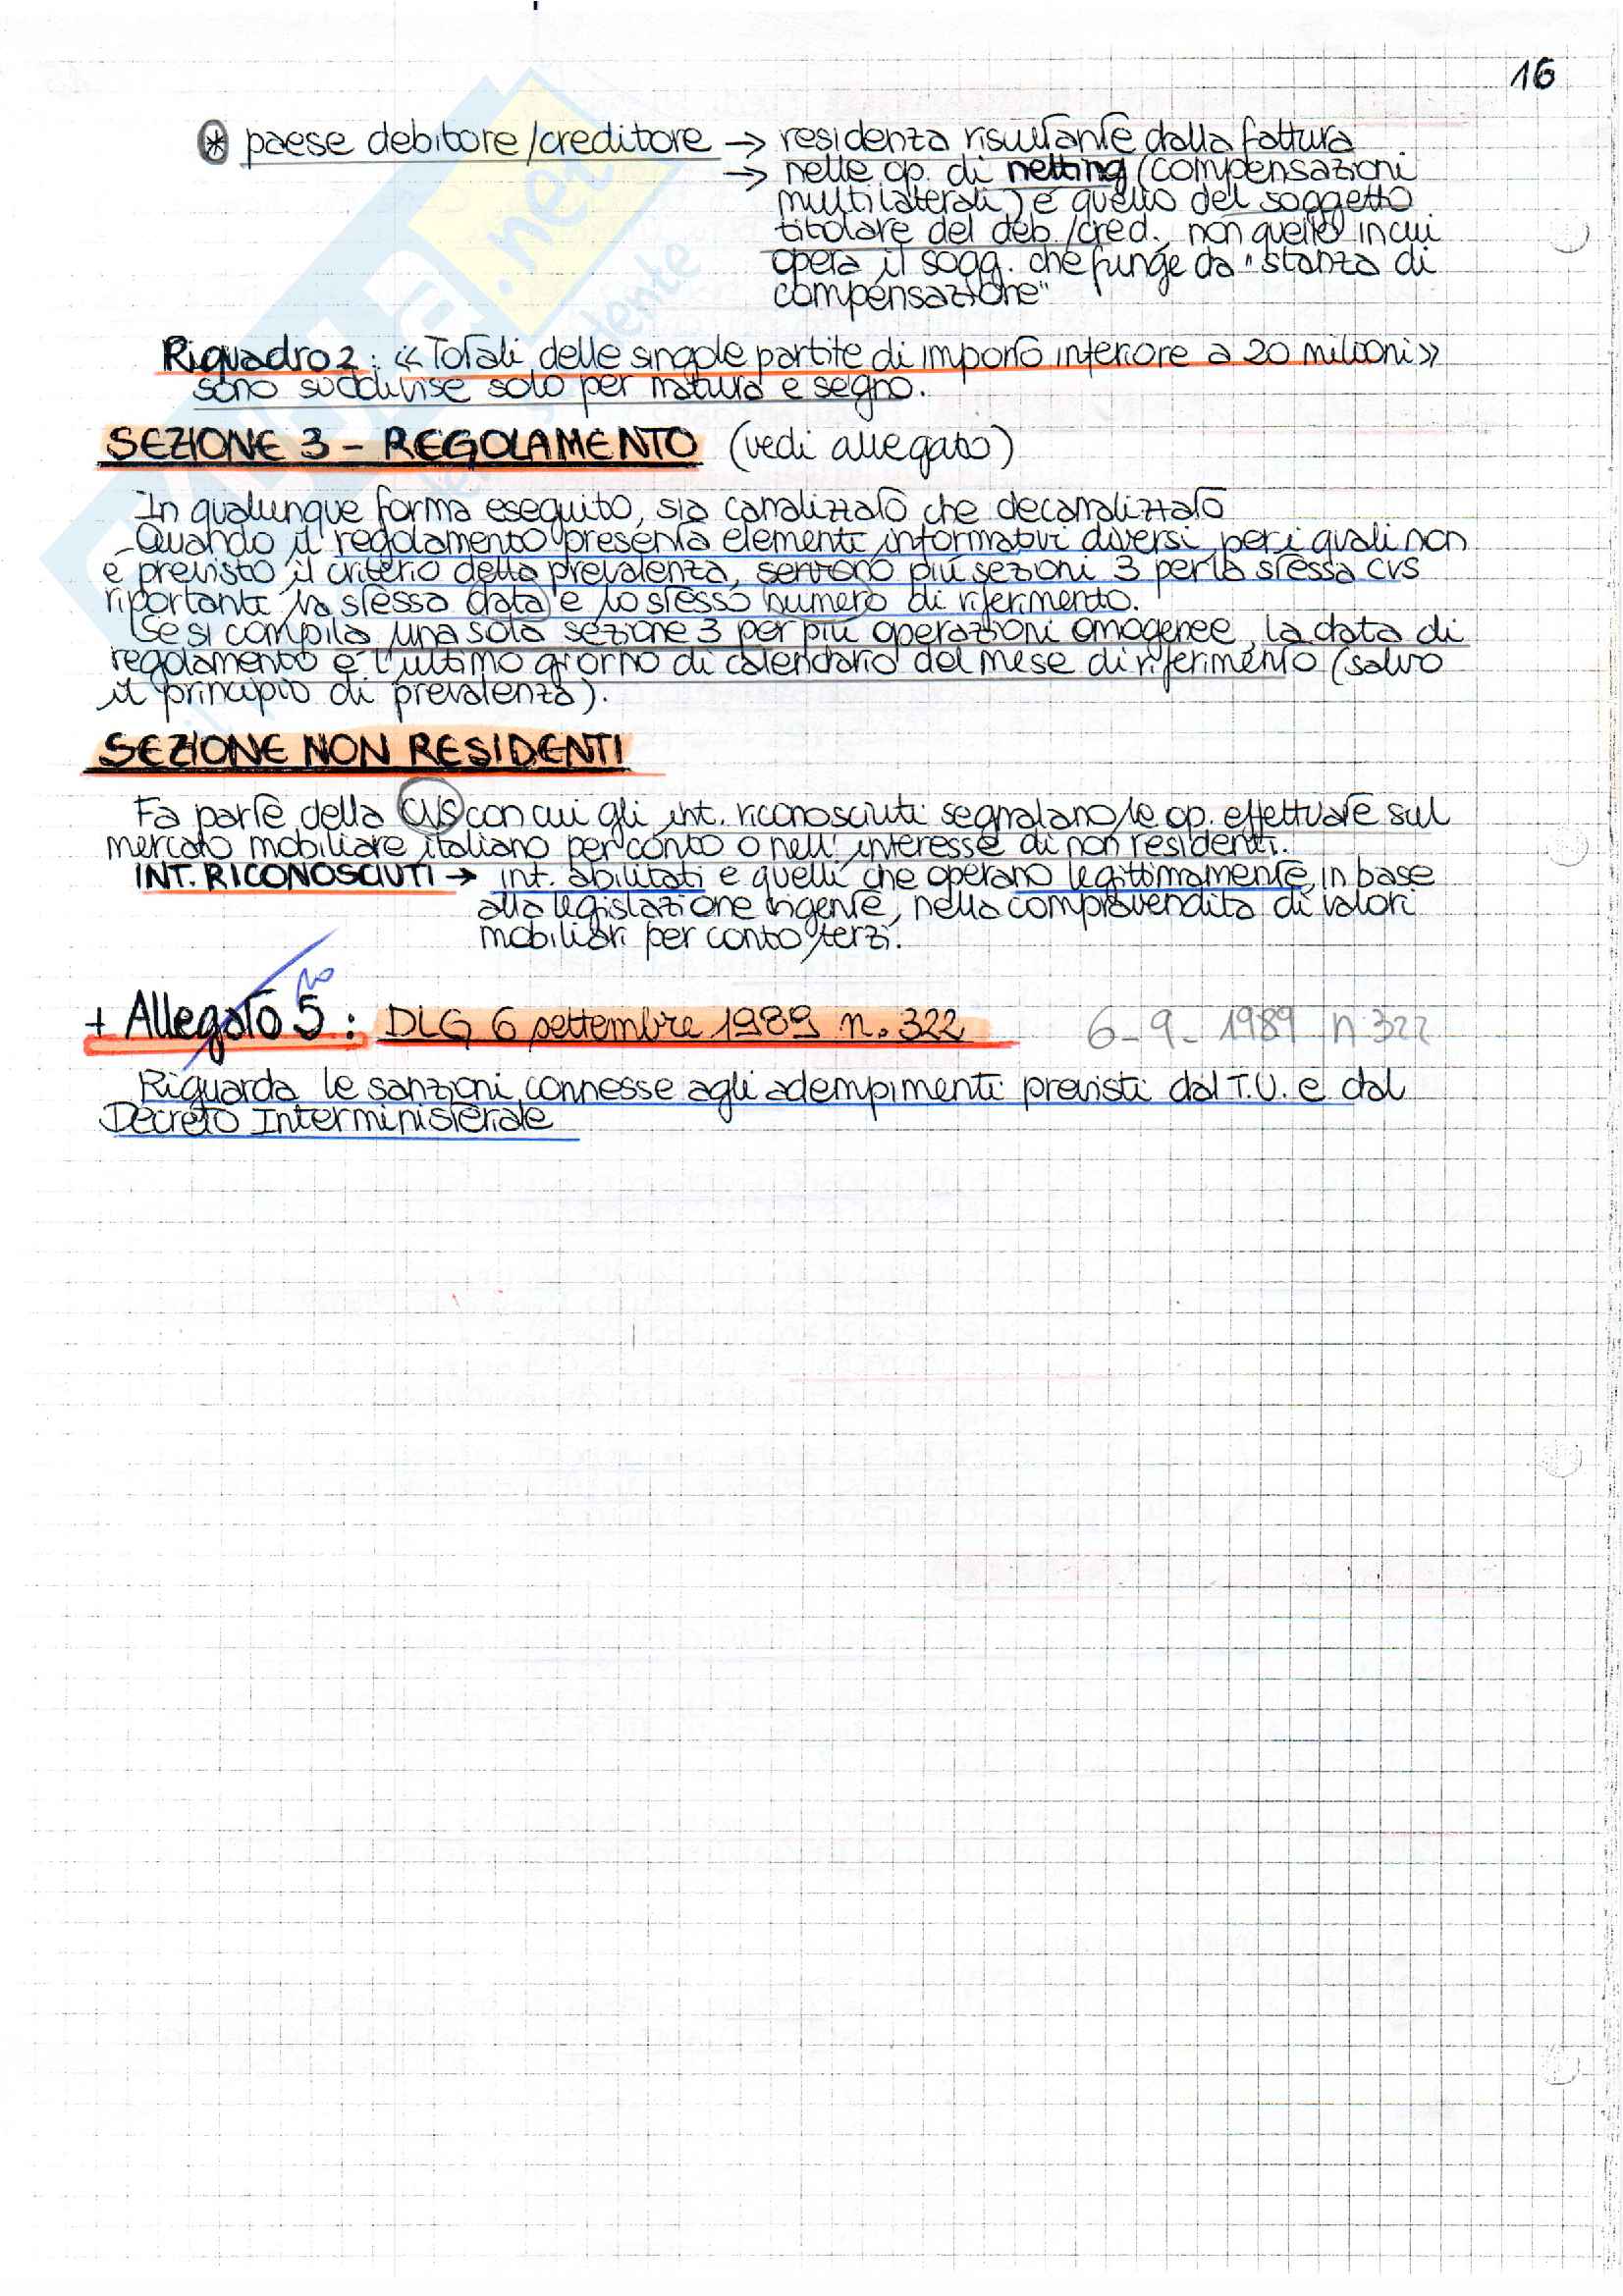 16
* paese debitore/creditore → residenza risultante dalla fattura
→ nelle op. di netting (compensazioni
multilaterali) è quello del soggetto
titolare del deb./cred., non quello in cui
opera il sogg. che funge da "stanza di
compensazione"
Riquadro 2: «Totali delle singole partite di importo inferiore a 20 milioni»
sono suddivise solo per natura e segno.
SEZIONE 3 - REGOLAMENTO (vedi allegato)
In qualunque forma eseguito, sia canalizzato che decanalizzato
- Quando il regolamento presenta elementi informativi diversi, per i quali non
è previsto il criterio della prevalenza, servono più sezioni 3 per la stessa CVS
riportanti la stessa data e lo stesso numero di riferimento.
Se si compila una sola sezione 3 per più operazioni omogenee, la data di
regolamento è l'ultimo giorno di calendario del mese di riferimento (salvo
il principio di prevalenza).
SEZIONE NON RESIDENTI
Fa parte della CVS con cui gli int. riconosciuti segnalano le op. effettuate sul
mercato mobiliare italiano per conto o nell'interesse di non residenti.
INT. RICONOSCIUTI → int. abilitati e quelli che operano legittimamente, in base
alla legislazione vigente, nella compravendita di valori
mobiliari per conto terzi.
no
+ Allegato 5: DLG 6 settembre 1989 n. 322 6-9-1989 n 322
Riguarda le sanzioni connesse agli adempimenti previsti dal T.U. e dal
Decreto Interministeriale